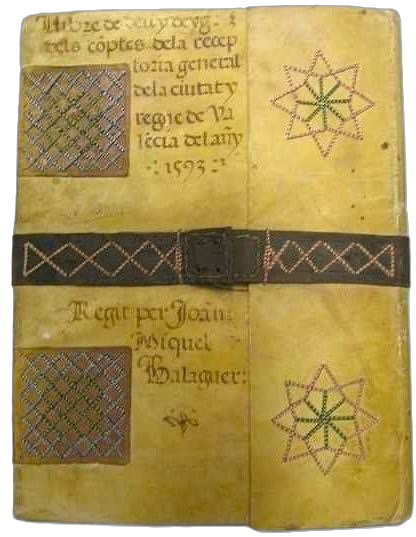 Llibre de deu y deyg.
dels cōptes dela recep
toria general
dela ciutat y
regne de Va
lēcia del añy
1593
Regit per Joān
Miquel
Balaguer: